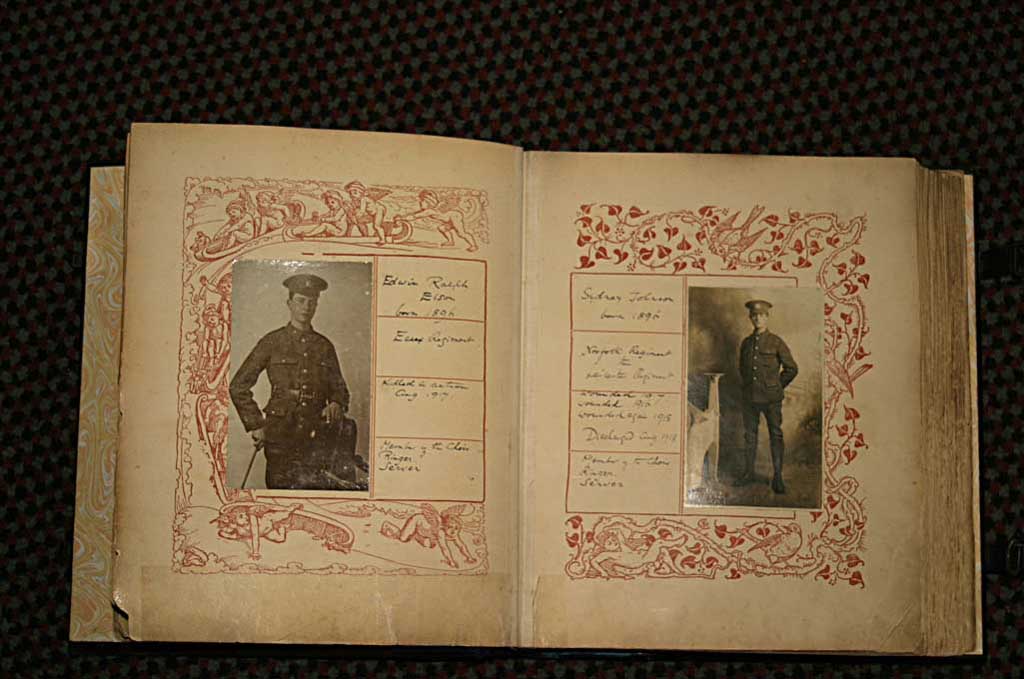 Edwin Ralph
Elson
born 1896
Essex Regiment
Killed in action
Aug. 1917
Member of the Choir
Ringer
Server
Sydney Johnson
born 1896
Norfolk Regiment
to
Regiment
wounded
wounded 1916
wounded again 1918
Discharged Aug 1918
Member of the Choir
Ringer
Server